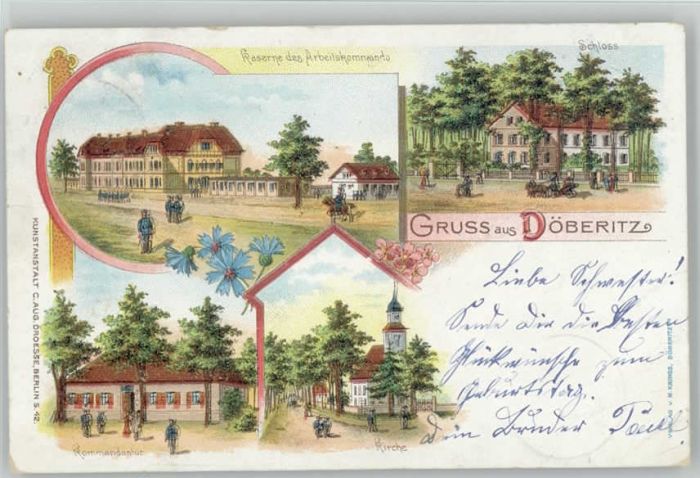 Kaserne des Arbeitskommando
Schloss
GRUSS aus DÖBERITZ
Liebe Schwester!
Sende Dir die Besten
Glückwünsche zum
Geburtstag.
Dein Bruder Paul.
Kommandantur
Kirche
KUNSTANSTALT C. AUG. DROESSE, BERLIN S. 42.
VERLAG V. M. DÖBERITZ